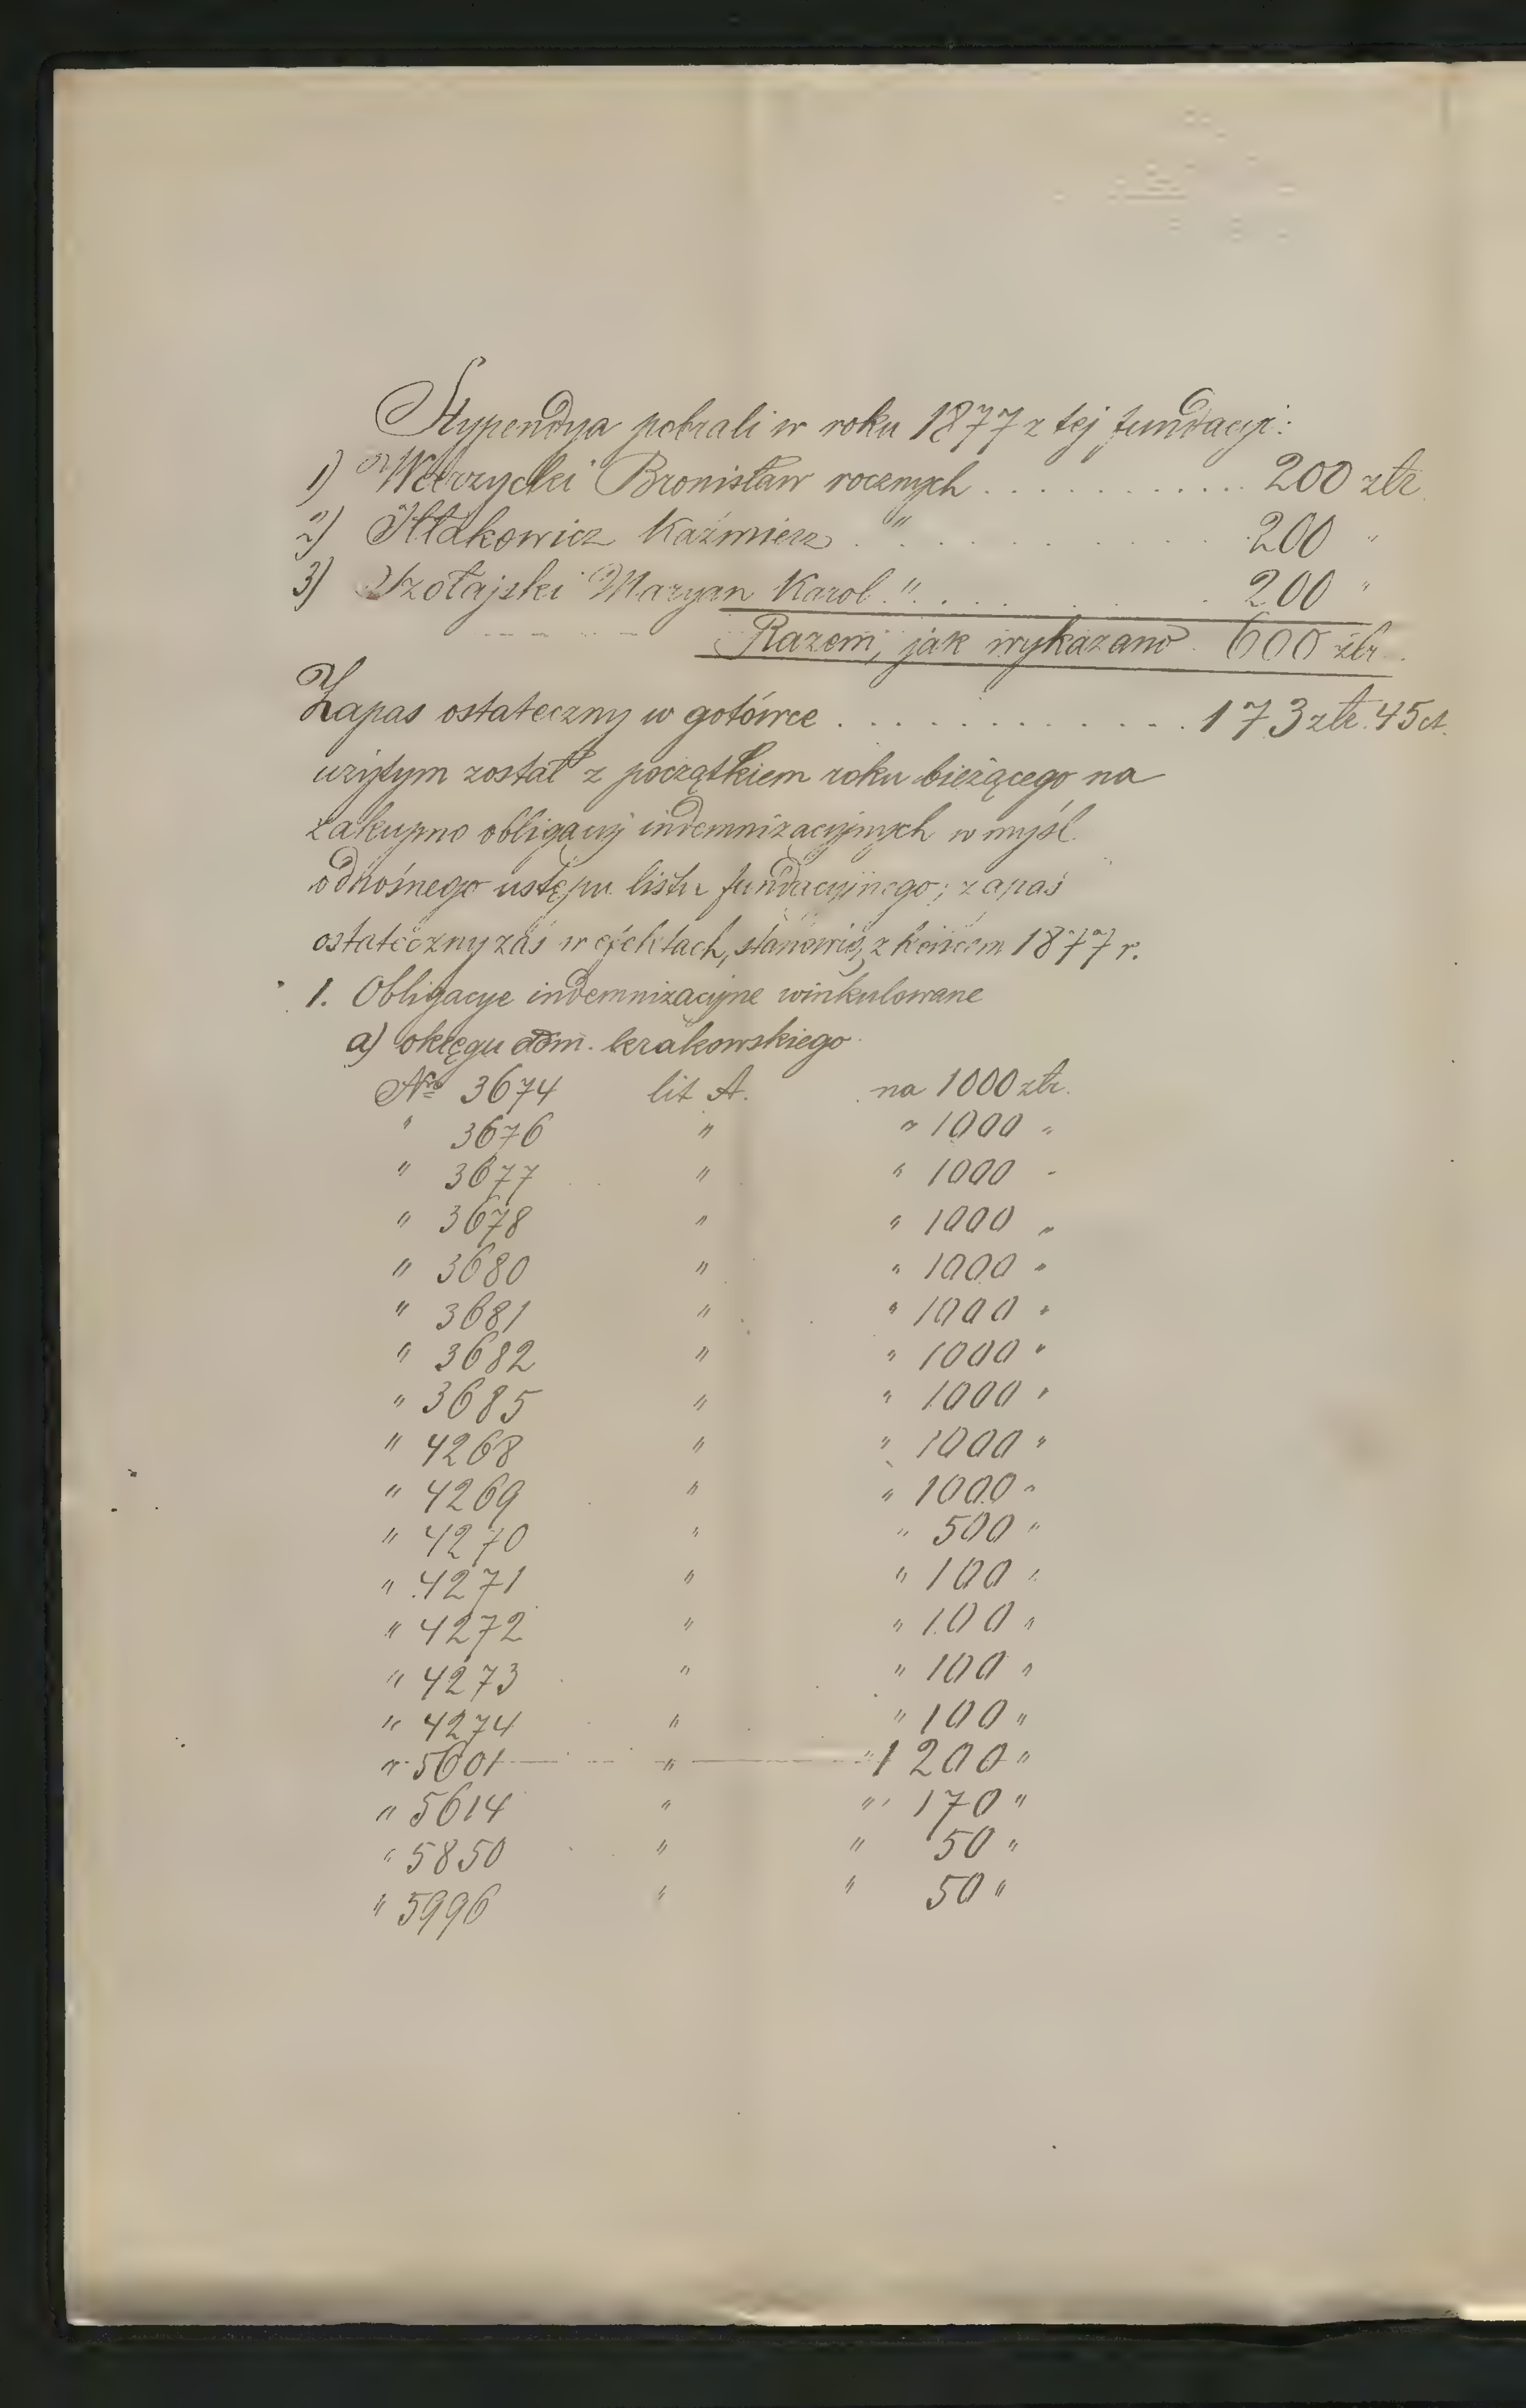 Stypendya pobrali w roku 1877 z tej fundacyi:
1) Bronisław rocznych . . . . . . . . . . . 200 złr.
2) Iłłakowicz Kaźmierz " . . . . . . . . . 200 "
3) Szołajski Maryan Karol " . . . . . . 200 "
Razem, jak wykazano 600 złr.
Zapas ostateczny w gotówce . . . . . . . . . . . 173 złr. 45 ct.
użytym został z początkiem roku bieżącego na
zakupno obligacyj indemnizacyjnych w myśl
odnośnego ustępu listu fundacyjnego; zapas
ostateczny zaś w efektach, stanowią z końcem 1877 r.
1. Obligacye indemnizacyjne winkulowane
a) okręgu adm. krakowskiego
Nro 3674 lit A. na 1000 złr.
" 3676 " " 1000 "
" 3677 " " 1000 "
" 3678 " " 1000 "
" 3680 " " 1000 "
" 3681 " " 1000 "
" 3682 " " 1000 "
" 3685 " " 1000 "
" 4268 " " 1000 "
" 4269 " " 1000 "
" 4270 " " 500 "
" 4271 " " 100 "
" 4272 " " 100 "
" 4273 " " 100 "
" 4274 " " 100 "
" 5601 " " 1200 "
" 5614 " " 170 "
" 5850 " " 50 "
" 5996 " " 50 "